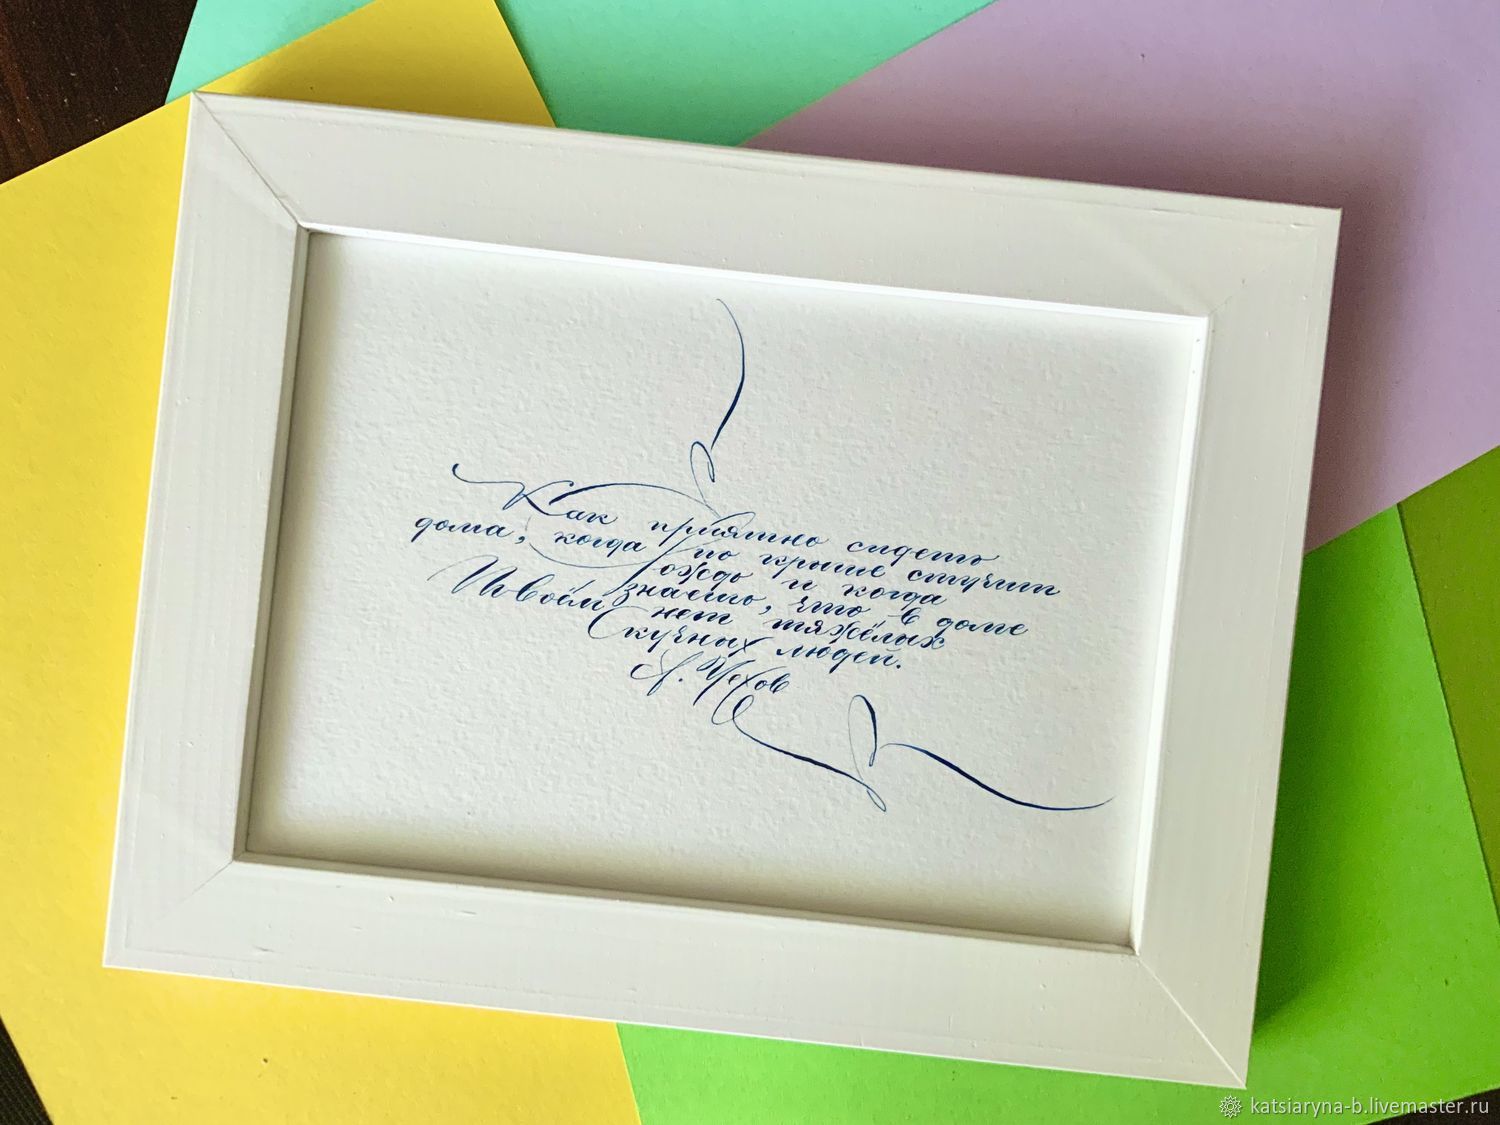 Как приятно сидеть
дома, когда по крыше стучит
дождь и когда
знаешь, что в доме
Твоём нет тяжёлых
Скучных людей.
А. Чехов
katsiaryna-b.livemaster.ru